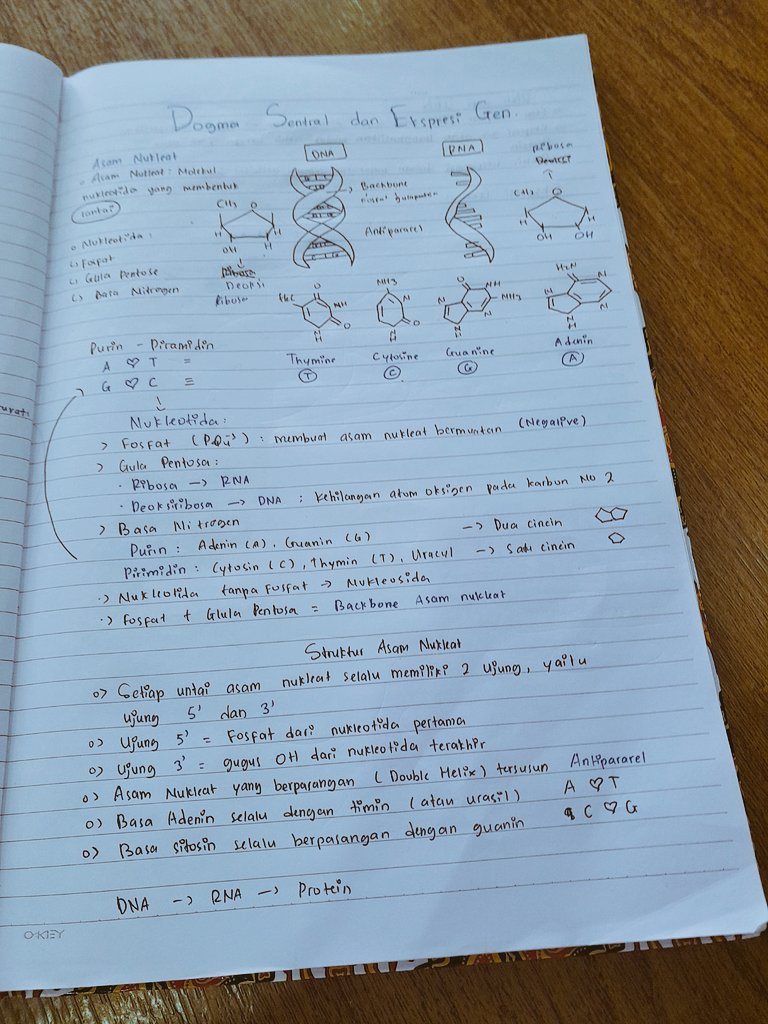 Dogma Sentral dan Ekspresi Gen.
Asam Nukleat
Asam Nukleat : Molekul
nukleotida yang membentuk
rantai
Nukleotida :
Fosfat
Gula Pentose
Basa Nitrogen
CH3
O
H
H
OH
Deopsi
Ribosa
DNA
Backbone
Antipararel
RNA
Ribosa
CH3
O
H
H
OH
OH
H3C
O
NH
O
N
H
Thymine
T
NH3
N
O
N
H
Cytosine
C
O
NH
NH3
N
N
N
H
Guanine
G
H2N
N
N
N
N
H
Adenin
A
Purin - Piramidin
A ♡ T =
G ♡ C ≡
Nukleotida :
> Fosfat (PO4³) : membuat asam nukleat bermuatan (Negative)
> Gula Pentosa :
· Ribosa -> RNA
· Deoksiribosa -> DNA : Kehilangan atom oksigen pada karbon No 2
> Basa Nitrogen
Purin : Adenin (A), Guanin (G) -> Dua cincin
Pirimidin : Cytosin (C), Thymin (T), Uracyl -> Satu cincin
·> Nukleotida tanpa fosfat -> Nukleosida
·> Fosfat + Glula Pentosa = Backbone Asam nukleat
Struktur Asam Nukleat
o> Setiap untai asam nukleat selalu memiliki 2 ujung, yaitu
ujung 5' dan 3'
o> Ujung 5' = Fosfat dari nukleotida pertama
o> Ujung 3' = gugus OH dari nukleotida terakhir
o> Asam Nukleat yang berparangan (Double Helix) tersusun Antipararel
o> Basa Adenin selalu dengan timin (atau urasil) A ♡ T
o> Basa sitosin selalu berpasangan dengan guanin C ♡ G
DNA -> RNA -> Protein
OKEY